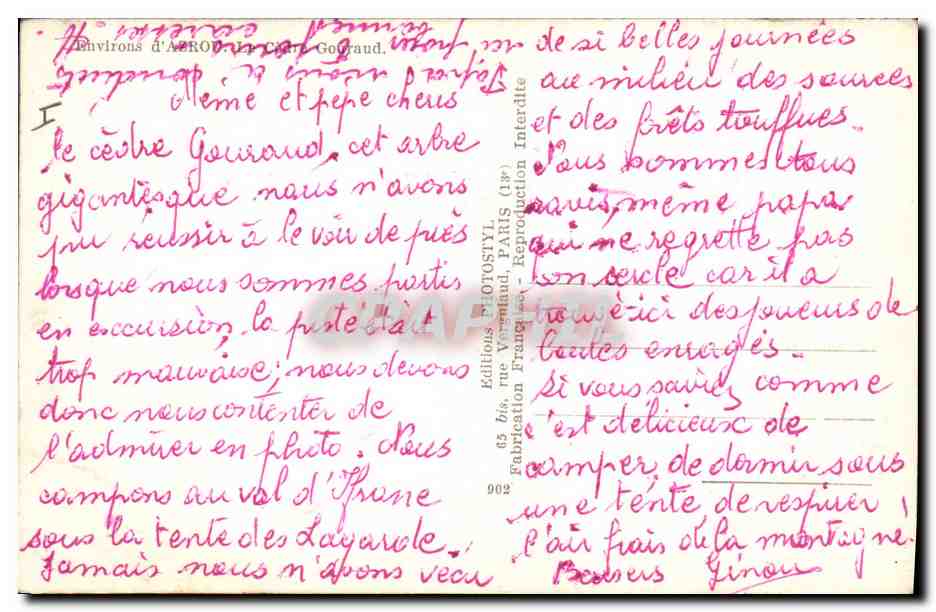 Environs d'AZROU. Le Cèdre Gouraud.
Mémé et pépé cheris
le cèdre Gouraud, cet arbre
gigantesque nous n'avons
pu réussir à le voir de près
lorsque nous sommes partis
en excursion, la piste était
trop mauvaise; nous devons
donc nous contenter de
l'admirer en photo. Nous
campons au val d'Ifrane
sous la tente des Lagarde.
Jamais nous n'avons vécu
de si belles journées
au milieu des sources
et des forêts touffues.
Nous sommes tous
ravis, même papa
qui ne regrette pas
son cercle car il a
trouvé ici des joueurs de
boules enragés.
Si vous saviez comme
c'est délicieux de
camper, de dormir sous
une tente, de respirer
l'air frais de la montagne.
Baisers Ginou
I
902
Editions PHOTOSTYL
65 bis, rue Vergniaud, PARIS (13e)
Fabrication Française - Reproduction Interdite